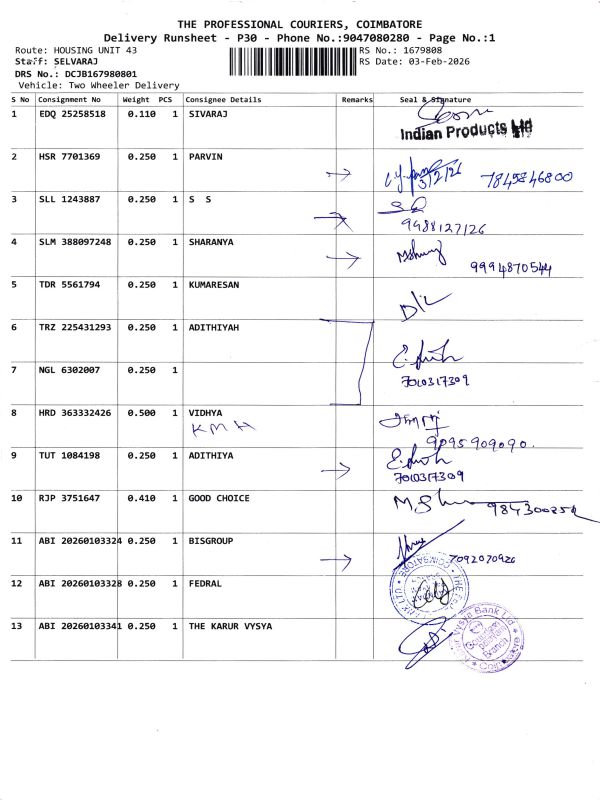 THE PROFESSIONAL COURIERS, COIMBATORE
Delivery Runsheet - P30 - Phone No.:9047080280 - Page No.:1
Route: HOUSING UNIT 43
RS No.: 1679808
Staff: SELVARAJ
RS Date: 03-Feb-2026
DRS No.: DCJB167980801
Vehicle: Two Wheeler Delivery
S No Consignment No Weight PCS Consignee Details Remarks Seal & Signature
1 EDQ 25258518 0.110 1 SIVARAJ
Indian Products Ltd
2 HSR 7701369 0.250 1 PARVIN
3/2/26 7845846800
3 SLL 1243887 0.250 1 S S
9488127126
4 SLM 388097248 0.250 1 SHARANYA
9994870544
5 TDR 5561794 0.250 1 KUMARESAN
D/L
6 TRZ 225431293 0.250 1 ADITHIYAH
7 NGL 6302007 0.250 1
7010317309
8 HRD 363332426 0.500 1 VIDHYA
KMH
9095909090.
9 TUT 1084198 0.250 1 ADITHIYA
7010317309
10 RJP 3751647 0.410 1 GOOD CHOICE
11 ABI 20260103324 0.250 1 BISGROUP
7092070926
12 ABI 20260103328 0.250 1 FEDRAL
COIMBATORE
13 ABI 20260103341 0.250 1 THE KARUR VYSYA
Karur Vysya Bank Ltd
Branch